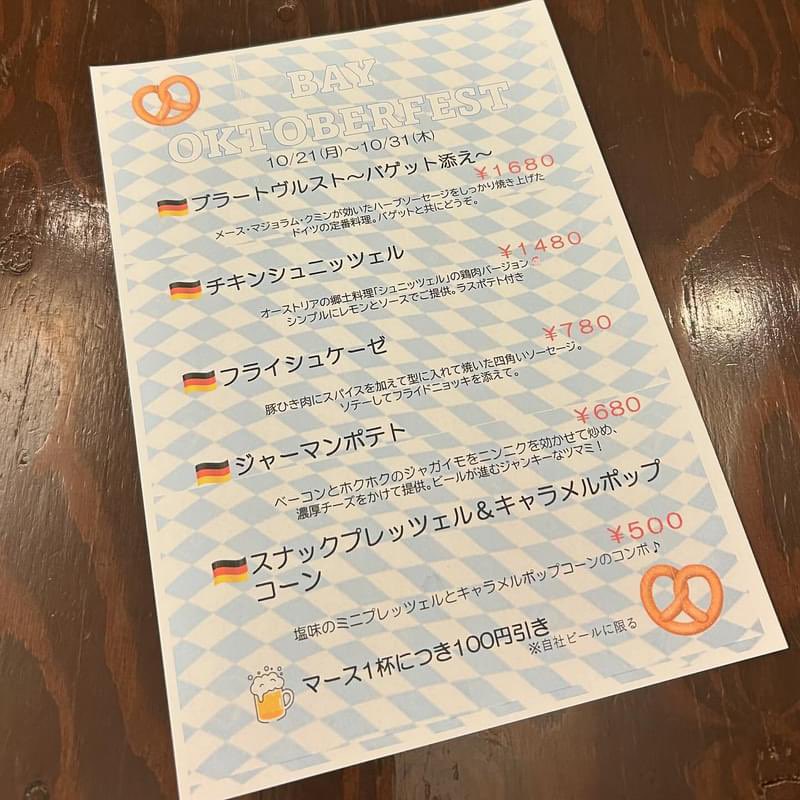 BAY
OKTOBERFEST
10/21(月)～10/31(木)
ブラートヴルスト～バゲット添え～
¥1680
メース・マジョラム・クミンが効いたハーブソーセージをしっかり焼き上げた
ドイツの定番料理。バゲットと共にどうぞ。
チキンシュニッツェル
¥1480
オーストリアの郷土料理「シュニッツェル」の鶏肉バージョン。
シンプルにレモンとソースでご提供。ラスポテト付き
フライシュケーゼ
¥780
豚ひき肉にスパイスを加えて型に入れて焼いた四角いソーセージ。
ソテーしてフライドニョッキを添えて。
ジャーマンポテト
¥680
ベーコンとホクホクのジャガイモをニンニクを効かせて炒め、
濃厚チーズをかけて提供。ビールが進むジャンキーなツマミ！
スナックプレッツェル＆キャラメルポップ
コーン
¥500
塩味のミニプレッツェルとキャラメルポップコーンのコンボ♪
マース1杯につき100円引き
※自社ビールに限る